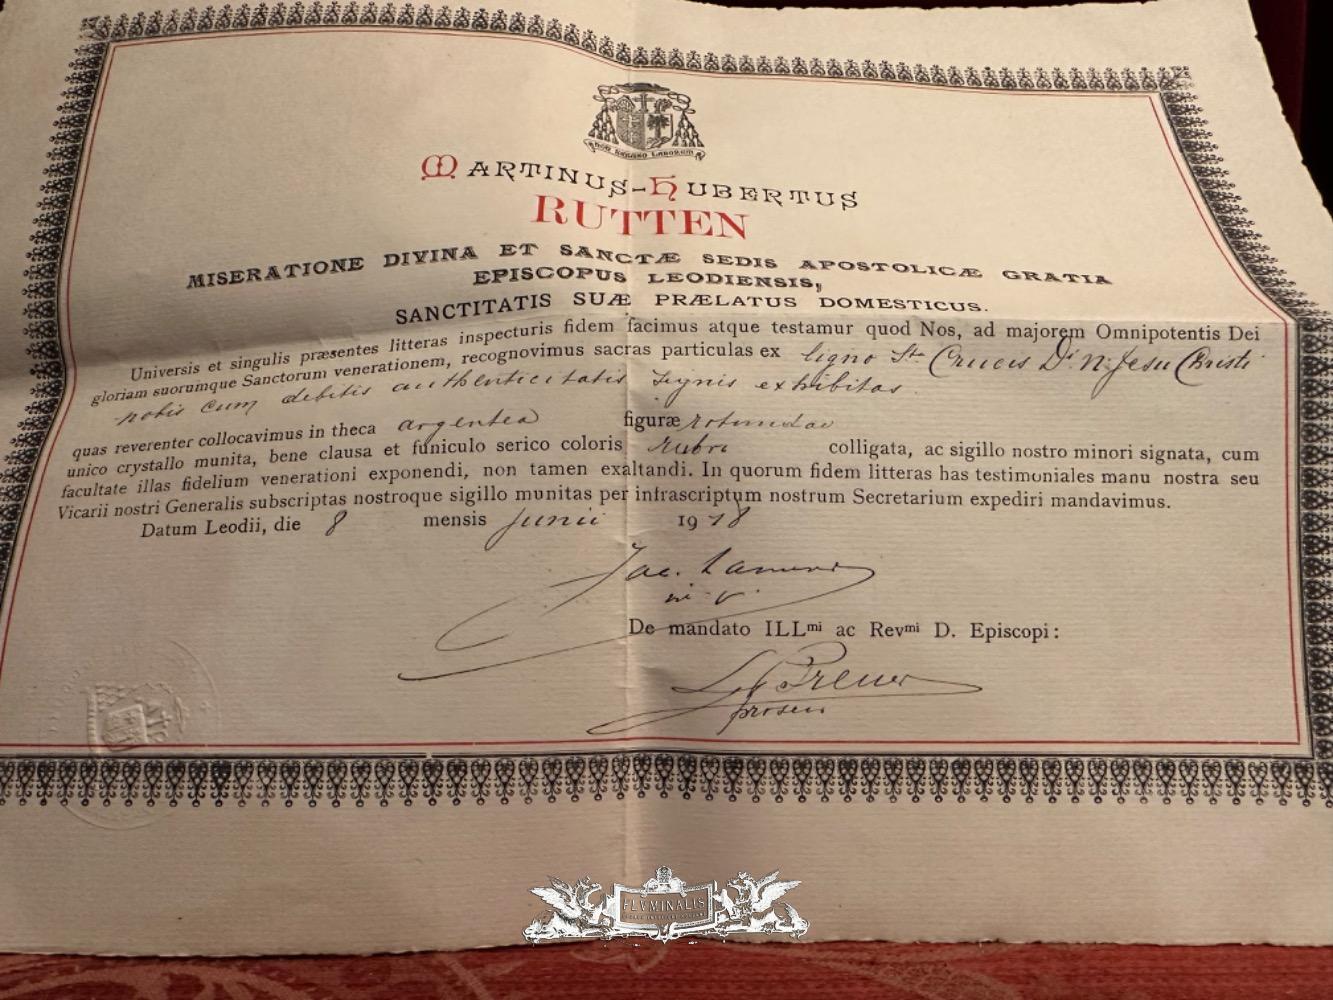 NON RECUSO LABOREM
MARTINUS-HUBERTUS
RUTTEN
MISERATIONE DIVINA ET SANCTÆ SEDIS APOSTOLICÆ GRATIA
EPISCOPUS LEODIENSIS,
SANCTITATIS SUÆ PRÆLATUS DOMESTICUS.
Universis et singulis præsentes litteras inspecturis fidem facimus atque testamur quod Nos, ad majorem Omnipotentis Dei
gloriam suorumque Sanctorum venerationem, recognovimus sacras particulas ex ligno Stae Crucis Di N. Jesu Christi
nobis cum debitis authenticitatis signis exhibitas
quas reverenter collocavimus in theca argentea figuræ rotundae
unico crystallo munita, bene clausa et funiculo serico coloris rubri colligata, ac sigillo nostro minori signata, cum
facultate illas fidelium venerationi exponendi, non tamen exaltandi. In quorum fidem litteras has testimoniales manu nostra seu
Vicarii nostri Generalis subscriptas nostroque sigillo munitas per infrascriptum nostrum Secretarium expediri mandavimus.
Datum Leodii, die 8 mensis Junii 1918
Jac.
De mandato ILLmi ac Revmi D. Episcopi:
prosecr
FLVMINALIS